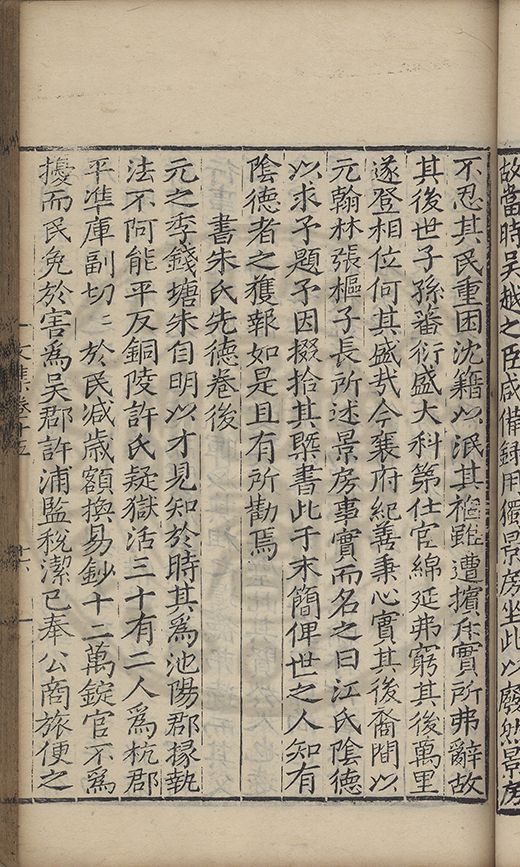 故當時吳越之臣咸備録用獨景房坐此以廢然景房
不忍其民重困沈籍以泯其禍雖遭擯斥實所弗辭故
其後世子孫蕃衍盛大科第仕官綿延弗窮其後萬里
遂登相位何其盛哉今襄府紀善秉心實其後裔間以
元翰林張樞子長所述景房事實而名之曰江氏陰德
以求予題予因掇拾其槩書此于末簡俾世之人知有
陰德者之獲報如是且有所勸焉
書朱氏先德卷後
元之季錢塘朱自明以才見知於時其為池陽郡掾執
法不阿能平反銅陵許氏疑獄活三十有二人為杭郡
平準庫副切〻於民减歲額換易鈔十二萬錠官不為
擾而民免於害為吳郡許浦監稅潔己奉公商旅便之
文集卷十五
十六